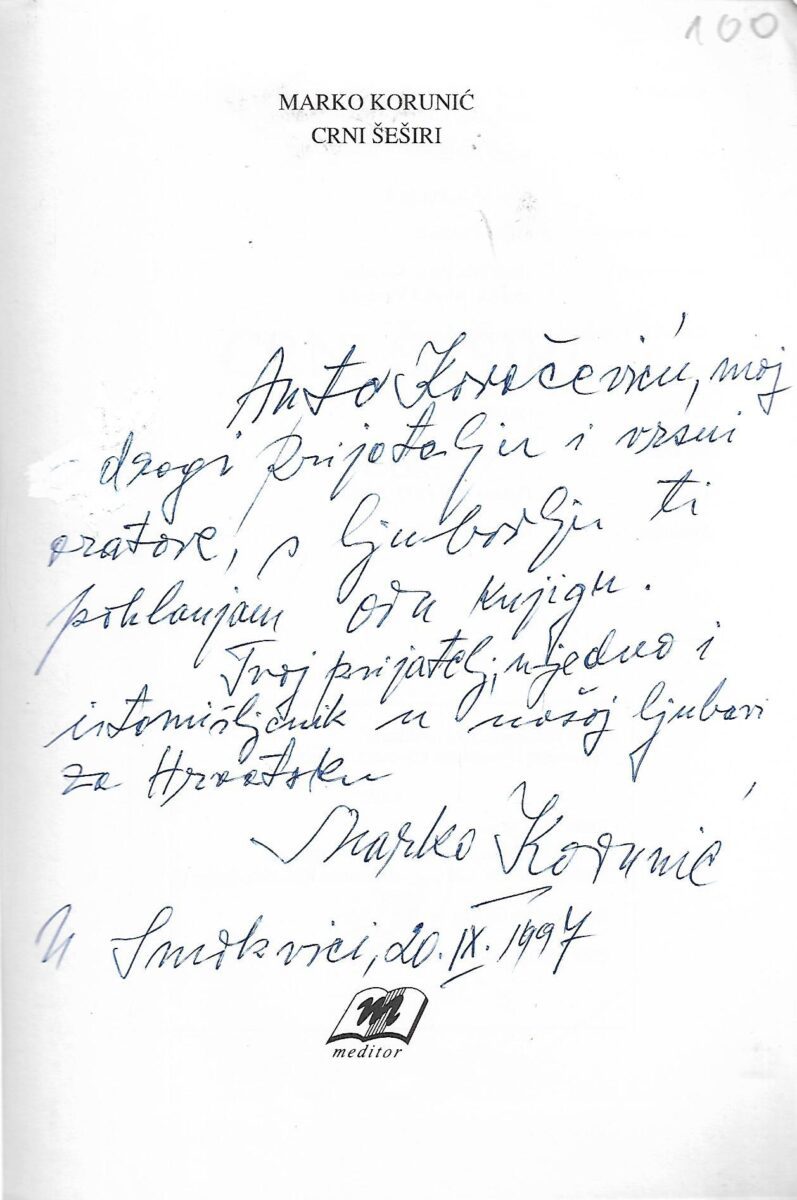 100
MARKO KORUNIĆ
CRNI ŠEŠIRI
Anto Kovačeviću, moj
dragi prijatelju i vrsni
oratore, s ljubavlju ti
poklanjam ovu knjigu.
Tvoj prijatelj, ujedno i
istomišljenik u našoj ljubavi
za Hrvatsku
Marko Korunić
U Smokvici, 20. IX. 1997
m
meditor